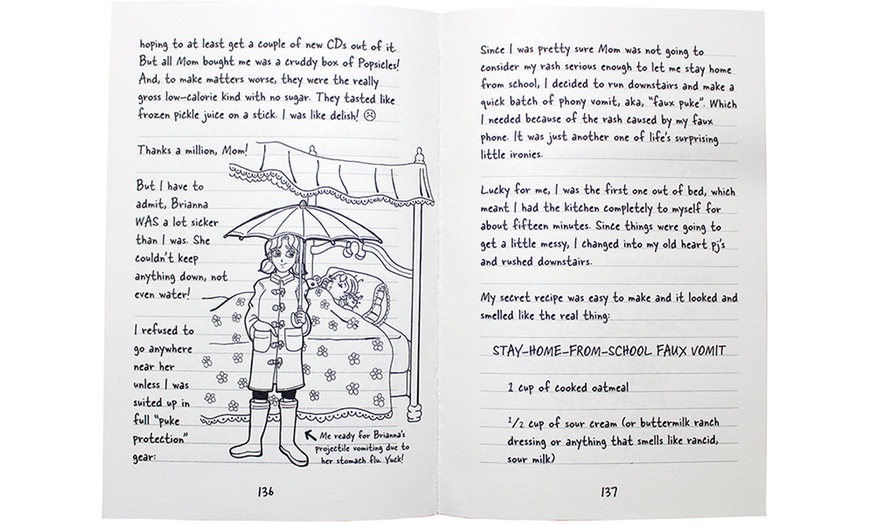 hoping to at least get a couple of new CDs out of it.
But all Mom bought me was a cruddy box of Popsicles!
And, to make matters worse, they were the really
gross low-calorie kind with no sugar. They tasted like
frozen pickle juice on a stick. I was like delish! ☹
Thanks a million, Mom!
But I have to
admit, Brianna
WAS a lot sicker
than I was. She
couldn't keep
anything down, not
even water!
I refused to
go anywhere
near her
unless I was
suited up in
full "puke
protection"
gear:
Me ready for Brianna's
projectile vomiting due to
her stomach flu. Yuck!
136
Since I was pretty sure Mom was not going to
consider my rash serious enough to let me stay home
from school, I decided to run downstairs and make a
quick batch of phony vomit, aka, "faux puke". Which
I needed because of the rash caused by my faux
phone. It was just another one of life's surprising
little ironies.
Lucky for me, I was the first one out of bed, which
meant I had the kitchen completely to myself for
about fifteen minutes. Since things were going to
get a little messy, I changed into my old heart pj's
and rushed downstairs.
My secret recipe was easy to make and it looked and
smelled like the real thing:
STAY-HOME-FROM-SCHOOL FAUX VOMIT
1 cup of cooked oatmeal
1/2 cup of sour cream (or buttermilk ranch
dressing or anything that smells like rancid,
sour milk)
137